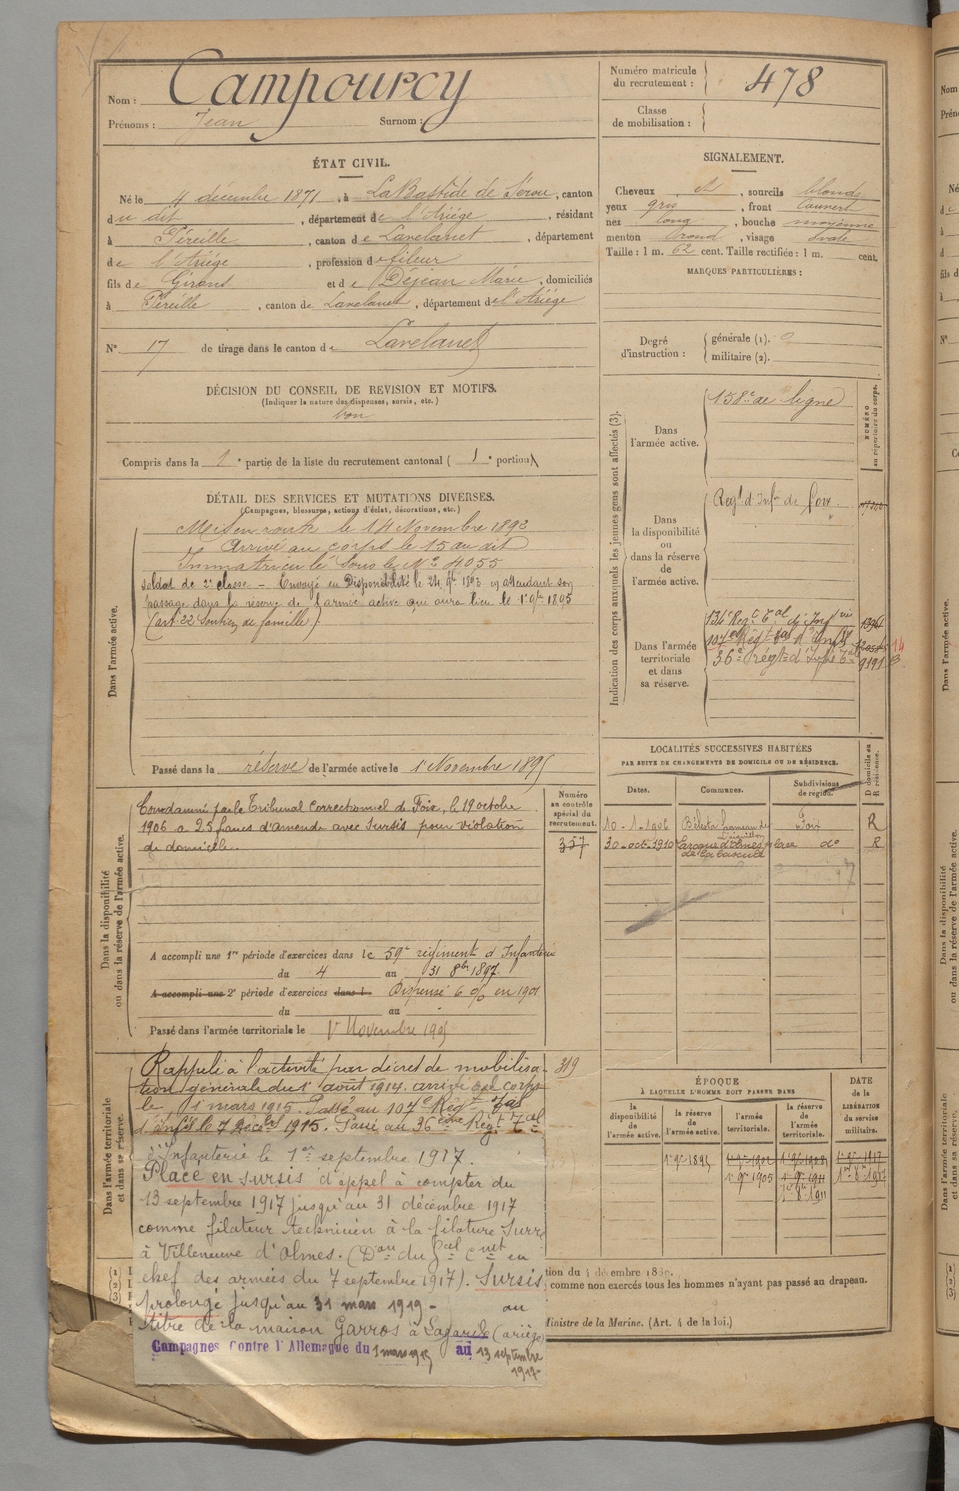 Nom : Campourcy
Prénoms : Jean Surnom :
Numéro matricule du recrutement : 478
Classe de mobilisation :
ÉTAT CIVIL.
Né le 4 décembre 1871, à LaBastide de Sérou, canton
du dit, département de l'Ariége, résidant
à Péreille, canton de Lavelanet, département
de l'Ariége, profession de fileur
fils de Girons et de Déjean Marie, domiciliés
à Péreille, canton de Lavelanet, département de l'Ariége
N° 17 de tirage dans le canton de Lavelanet
SIGNALEMENT.
Cheveux et, sourcils blonds
yeux gris, front couvert
nez long, bouche moyenne
menton rond, visage ovale
Taille : 1 m. 62 cent. Taille rectifiée : 1 m. cent.
MARQUES PARTICULIÈRES :
Degré d'instruction : générale (1).
militaire (2).
DÉCISION DU CONSEIL DE REVISION ET MOTIFS.
(Indiquer la nature des dispenses, sursis, etc.)
bon
Compris dans la 1e partie de la liste du recrutement cantonal ( 1e portion)
DÉTAIL DES SERVICES ET MUTATIONS DIVERSES.
(Campagnes, blessures, actions d'éclat, décorations, etc.)
Dans l'armée active.
Mis en route le 14 Novembre 1892
Arrivé au corps le 15 au dit
Immatriculé sous le N° 4055
soldat de 2e classe - Envoyé en Disponibilité le 24 9bre 1893 en attendant son
passage dans la réserve de l'armée active qui aura lieu le 1er 9bre 1895
(art. 22 Soutien de famille).
Passé dans la réserve de l'armée active le 1er Novembre 1895
Indication des corps auxquels les jeunes gens sont affectés (3).
NUMÉRO au répertoire du corps.
Dans l'armée active. 158e de ligne
Dans la disponibilité ou dans la réserve de l'armée active. Regt d'Infie de Foix
Dans l'armée territoriale et dans sa réserve. 134e Regt Tal d'Infie
107e Regt Tal d'Infie
36e régt d'Infie Tale 9191
LOCALITÉS SUCCESSIVES HABITÉES
PAR SUITE DE CHANGEMENTS DE DOMICILE OU DE RÉSIDENCE.
Dates. Communes. Subdivisions de région. D domicile ou R résidence.
10-1-1906 Bélesta hameau de l'aiguillon Foix R
30-oct-1910 Laroque d'Olmes place de la bascule do R
Dans la disponibilité ou dans la réserve de l'armée active.
Numéro au contrôle spécial du recrutement.
357
Condamné par le Tribunal Correctionnel de Foix, le 19 octobre
1906 a 25 francs d'amende avec sursis pour violation
de domicile.
A accompli une 1re période d'exercices dans le 59e régiment d'Infanterie
du 4 au 31 8bre 1897
A accompli une 2e période d'exercices dans l Dispensé 6 % en 1901
du au
Passé dans l'armée territoriale le 1er Novembre 1905
Dans l'armée territoriale et dans sa réserve.
319
Rappelé à l'activité par décret de mobilisa-
tion générale du 1er août 1914. arrivé au corps
le 1 mars 1915. Passé au 107e Régt Tal
d'Infie le 7 Décbre 1915. Passé au 36ème Régt Tal
d'Infanterie le 1er septembre 1917.
Placé en sursis d'appel à compter du
13 septembre 1917 jusqu'au 31 décembre 1917
comme filateur technicien à la filature Surre
à Villeneuve d'Olmes. (Don du Gal Ct en
chef des armées du 7 septembre 1917). Sursis
prolongé jusqu'au 31 mars 1919 - au
titre de la maison Garros à Lagarde (ariège)
Campagnes contre l'Allemagne du 1 mars 1915 au 13 septembre
1917-
ÉPOQUE
À LAQUELLE L'HOMME DOIT PASSER DANS
la disponibilité de l'armée active. la réserve de l'armée active. l'armée territoriale. la réserve de l'armée territoriale. DATE DE LA LIBÉRATION du service militaire.
1er 9bre 1895 1er 9bre 1902 1er 9bre 1908 1er 9bre 1917
1er 9bre 1905 1er 9bre 1911
1er 8bre 1911
(1)
(2)
(3)
comme non exercés tous les hommes n'ayant pas passé au drapeau.
Ministre de la Marine. (Art. 4 de la loi.)